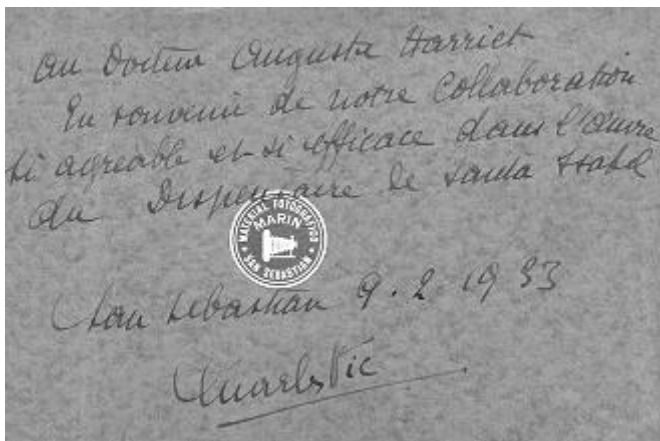 Au Docteur Auguste Harriet
En souvenir de notre Collaboration
si agreable et si efficace dans l'œuvre
du Dispensaire de Santa Isabel
MATERIAL FOTOGRAFICO
MARIN
SAN SEBASTIAN
San Sebastian 9.2 1933